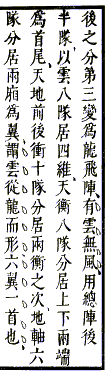 後之分第三變爲龍飛陣有雲無風用總陣後
半隊以雲八隊居四維天衡八隊分居上下兩端
爲首尾天地前後衝十隊分居兩衡之次地軸六
隊分居兩廂爲翼謂雲從龍而形六翼一首也